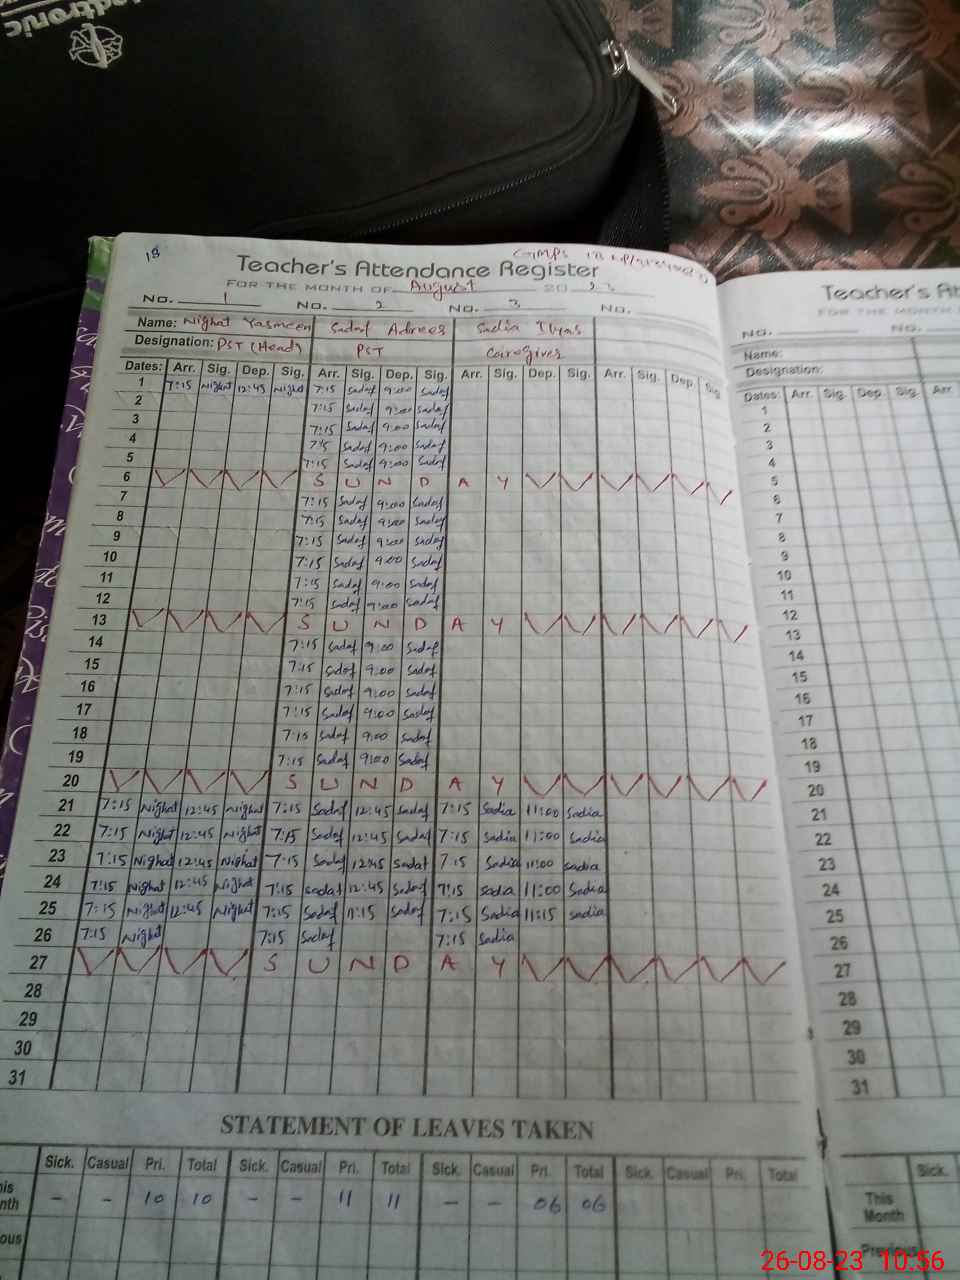 18
Teacher's Attendance Register
FOR THE MONTH OF August 20 23
No. 1 No. 2 No. 3 No.
Name: Nighat Yasmeen Sadaf Adrees Sadia Ilyas
Designation: PST (Head) PST Caregiver
Dates: Arr. Sig. Dep. Sig. Arr. Sig. Dep. Sig. Arr. Sig. Dep. Sig. Arr. Sig. Dep. Sig.
1 7:15 Nighat 12:45 Nighat 7:15 Sadaf 9:00 Sadaf
2 7:15 Sadaf 9:00 Sadaf
3 7:15 Sadaf 9:00 Sadaf
4 7:15 Sadaf 9:00 Sadaf
5 7:15 Sadaf 9:00 Sadaf
6 S U N D A Y
7 7:15 Sadaf 9:00 Sadaf
8 7:15 Sadaf 9:00 Sadaf
9 7:15 Sadaf 9:00 Sadaf
10 7:15 Sadaf 9:00 Sadaf
11 7:15 Sadaf 9:00 Sadaf
12 7:15 Sadaf 9:00 Sadaf
13 S U N D A Y
14 7:15 Sadaf 9:00 Sadaf
15 7:15 Sadaf 9:00 Sadaf
16 7:15 Sadaf 9:00 Sadaf
17 7:15 Sadaf 9:00 Sadaf
18 7:15 Sadaf 9:00 Sadaf
19 7:15 Sadaf 9:00 Sadaf
20 S U N D A Y
21 7:15 Nighat 12:45 Nighat 7:15 Sadaf 12:45 Sadaf 7:15 Sadia 11:00 Sadia
22 7:15 Nighat 12:45 Nighat 7:15 Sadaf 12:45 Sadaf 7:15 Sadia 11:00 Sadia
23 7:15 Nighat 12:45 Nighat 7:15 Sadaf 12:45 Sadaf 7:15 Sadia 11:00 Sadia
24 7:15 Nighat 12:45 Nighat 7:15 Sadaf 12:45 Sadaf 7:15 Sadia 11:00 Sadia
25 7:15 Nighat 12:45 Nighat 7:15 Sadaf 11:15 Sadaf 7:15 Sadia 11:15 Sadia
26 7:15 Nighat 7:15 Sadaf 7:15 Sadia
27 S U N D A Y
28
29
30
31
STATEMENT OF LEAVES TAKEN
Sick. Casual Pri. Total Sick. Casual Pri. Total Sick. Casual Pri. Total Sick. Casual Pri. Total
- - 10 10 - - 11 11 - - 06 06
Teacher's At
FOR THE MONTH
No. No.
Name:
Designation:
Dates: Arr. Sig. Dep. Sig. Arr.
1
2
3
4
5
6
7
8
9
10
11
12
13
14
15
16
17
18
19
20
21
22
23
24
25
26
27
28
29
30
31
Sick.
This
Month
Previous
26-08-23 10:56